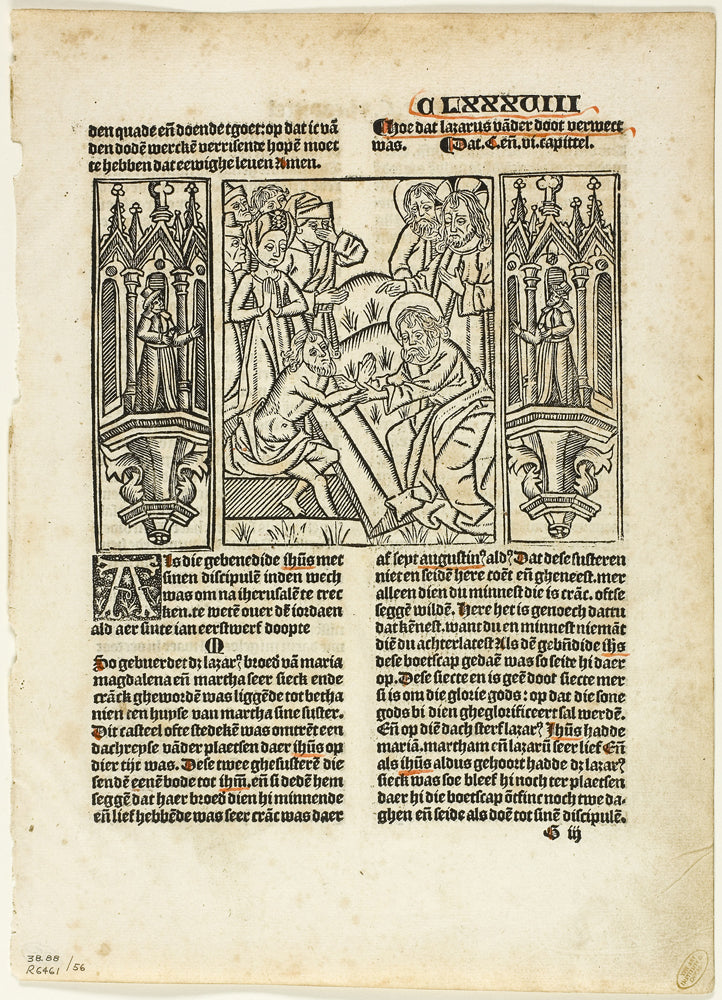 C LXXXVIII
den quade en̄ doende tgoet: op dat ic vā
den dodē werckē verrisente hopē moet
te hebben dat eewighe leuen Amen.
¶ hoe dat lazarus vāder doot verwect
was. ¶ Dat .C. en̄. vi. capittel.
Als die gebenedide ihūs met
sinen discipulē inden wech
was om na iherusalē te trec
ken. te wetē ouer dē iordaen
ald aer sinte ian eerstwerf doopte
M
So gebuerdet dz lazarꝰ broed vā maria
magdalena en̄ martha seer sieck ende
crāck ghewordē was liggēde tot betha
nien ten huyse van martha sine suster.
Dit casteel ofte stedekē was omtrēt een
dachreyse vāder plaetsen daer ihūs op
dier tijt was. Dese twee ghesusterē die
sendē eenē bode tot ihm̄. en̄ si dedē hem
seggē dat haer broed dien hi minnende
en̄ lief hebbēde was seer crāc was daer
af sept augustinꝰ aldꝰ Dat dese susteren
niet en seidē here coēt en̄ gheneest. mer
alleen dien du minnest die is crāc. oftse
seggē wildē. Here het is genoech dattu
dat kēnest. want du en minnest niemāt
diē du achterlatest Als dē gebn̄dide ihs
dese boetscap gedaē was so seide hi daer
op. Dese siecte en is geē doot siecte mer
si is om die glorie gods: op dat die sone
gods bi dien gheglorificeert sal werdē.
En̄ op diē dach sterf lazarꝰ Ihūs hadde
mariā. martham en̄ lazarū seer lief En̄
als ihūs aldus gehoort hadde dz lazarꝰ
sieck was soe bleef hi noch ter plaetsen
daer hi die boetscap ōtfinc noch twe da-
ghen en̄ seide als doē tot sinē discipulē.
G iij
38.88
R6461 /56